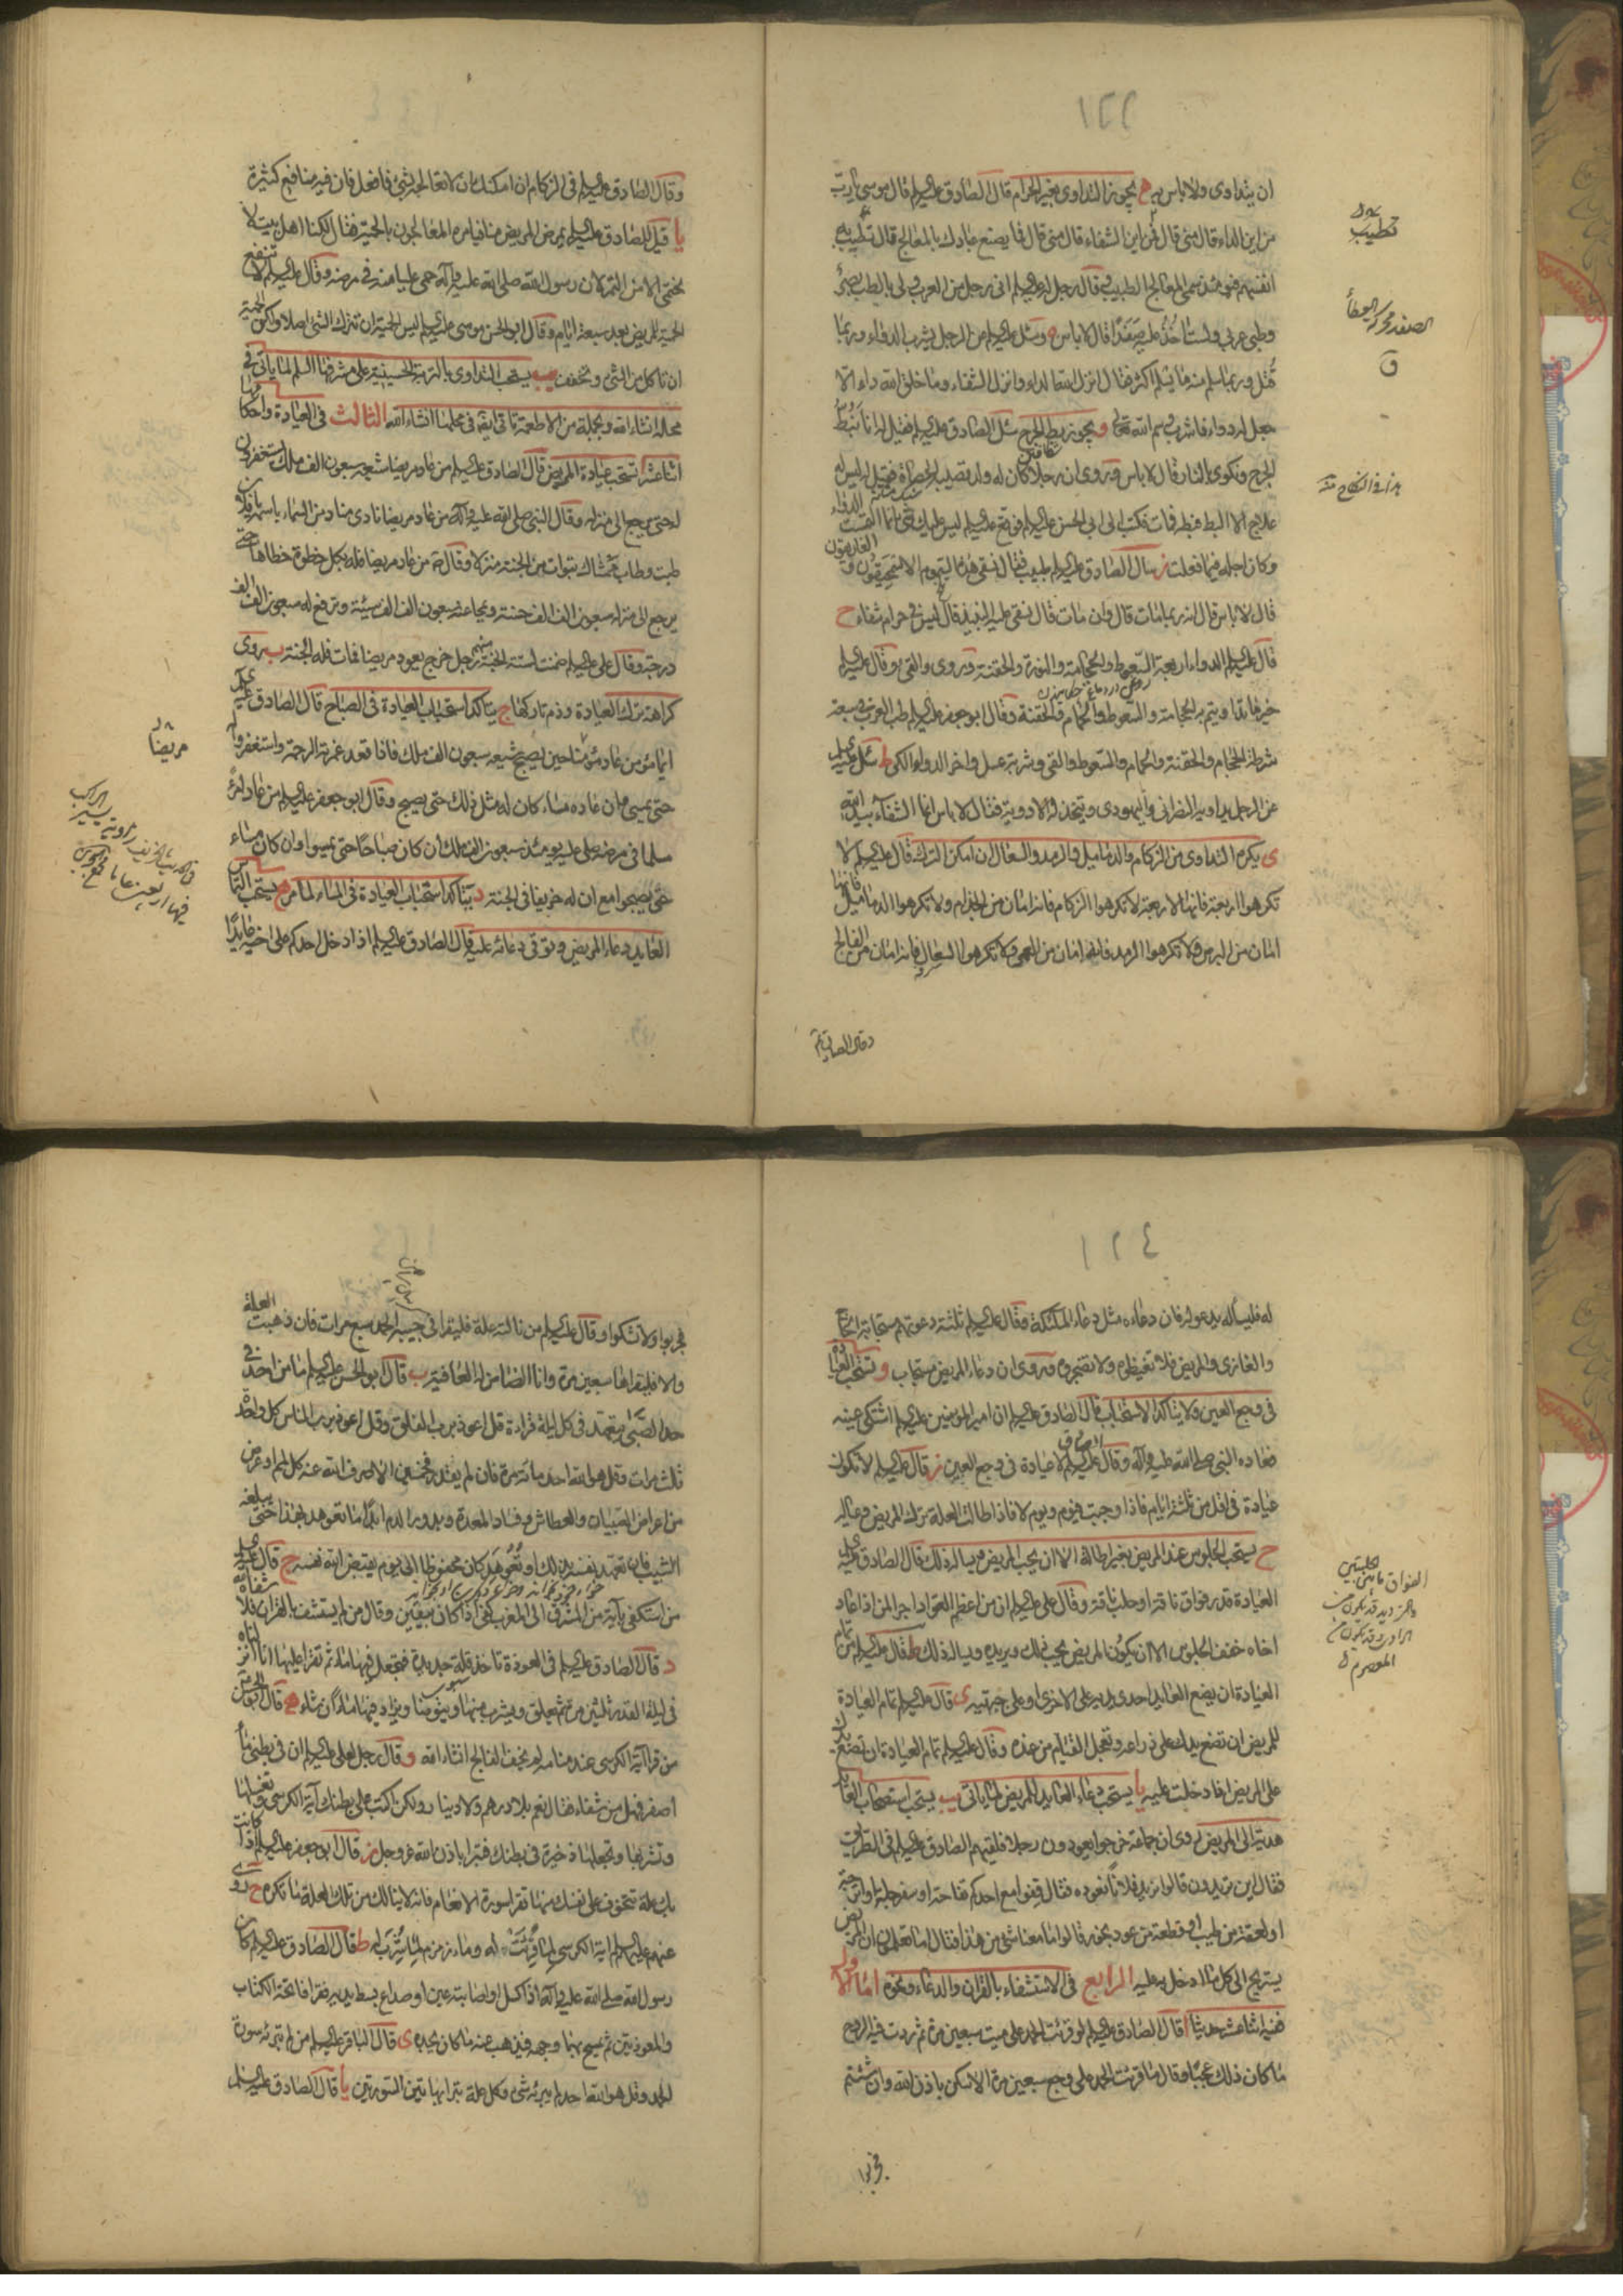 ١٢٢
ان يتداوى ولا باس به ه يجوز التداوى بغير الحرام قال الصادق عليه السلم قال موسى يارب
من اين الداء قال منى قال فمن اين الشفاء قال منى قال فما يصنع عبادك بالمعالج قال تطيب به
انفسهم فيومئذ سمى المعالج الطبيب قال رجل له عليه السلم انى رجل من العرب ولى بالطب بصر
وطبى عربى ولست اخذ عليه صفدا قال لا باس وسئل عليه السلم من الرجل يشرب الدواء وربما
قتل وربما سلم منه ما يسلم اكثر فقال انزل الله الداء وانزل الشفاء وما خلق الله داء الا
جعل له دواء فاشرب وسم الله تعالى و يجوز بط الجرح سئل الصادق عليه السلم فقيل له انا نبط
الجرح ونكوى بالنار قال لا باس وروى ان رجلا كان له ولد فقيل له ليس له
علاج الا البط فبطه فمات فكتب الى ابى الحسن عليه السلم فوقع عليه السلم ليس عليك شئ انما التمست الدواء
وكان اجله فيما فعلت ز سال الصادق عليه السلم طبيب فقال نسقى هذا السموم الاسمحيقون والغاريقون
قال لا باس قال انه ربما مات قال وان مات قال نسقى عليه النبيذ قال ليس فى حرام شفاء ح
قال عليه السلم الدواء اربعة السعوط والحجامة والنورة والحقنة وروى والقى وقال عليه السلم
خير ما تداويتم به الحجامة والسعوط والحمام والحقنة وقال ابو جعفر عليه السلم طب العرب فى سبعة
شرطة الحجام والحقنة والحمام والسعوط والقى وشربة عسل واخر الدواء الكى ط سئل عليه السلم
عن الرجل يداويه النصرانى واليهودى ويتخذ له الادوية فقال لا باس انما الشفاء بيد الله
ى يكره التداوى من الزكام والدماميل والرمد والسعال ان امكن الترك قال عليه السلم لا
تكرهوا اربعة فانها لاربعة لا تكرهوا الزكام فانه امان من الجذام ولا تكرهوا الدماميل فانها
امان من البرص ولا تكرهوا الرمد فانه امان من العمى ولا تكرهوا السعال فانه امان من الفالج
وقال الصادق
تطيب
الصفد محركة العطاء
ق
وقال الصادق عليه السلم فى الزكام ان امكنك ان لا تعالجه بشئ فافعل فان فيه منافع كثيرة
يا قيل للصادق عليه السلم يمرض المريض منا فيامره المعالجون بالحمية فقال لكنا اهل بيت لا
نحتمى الا من التمر لان رسول الله صلى الله عليه وآله حمى عليا منه فى مرضه وقال عليه السلم لا تنفع
الحمية المريض بعد سبعة ايام وقال ابو الحسن موسى عليه السلم ليس الحمية ان تترك الشئ اصلا ولكن الحمية
ان تاكل من الشئ وتخفف يب يستحب التداوى بالتربة الحسينية على مشرفها السلم لما ياتى فى
محله انشاء الله وبجملة من الاطعمة تاتى ايضا فى محلها انشاء الله الثالث فى العيادة واحكامها
اثنا عشر ا تستحب عيادة المريض قال الصادق عليه السلم من عاد مريضا شيعه سبعون الف ملك يستغفرون
له حتى يرجع الى منزله وقال النبى صلى الله عليه وآله من عاد مريضا نادى مناد من السماء باسمه يا فلان
طبت وطاب ممشاك تبوات من الجنة منزلا وقال من عاد مريضا فله بكل خطوة خطاها حتى
يرجع الى منزله سبعون الف الف حسنة ويمحا عنه سبعون الف الف سيئة وترفع له سبعون الف الف
درجة وقال على عليه السلم ضمنت لستة الجنة منهم رجل خرج يعود مريضا فمات فله الجنة ب روى
كراهة ترك العيادة وذم تاركها ج يتاكد استحباب العيادة فى الصباح قال الصادق عليه السلم
ايما مؤمن عاد مؤمنا حين يصبح شيعه سبعون الف ملك فاذا قعد غمرته الرحمة واستغفروا له
حتى يمسى وان عاده مساء كان له مثل ذلك حتى يصبح وقال ابو جعفر عليه السلم من عاد امرء
مسلما فى مرضه صلى عليه يومئذ سبعون الف ملك ان كان صباحا حتى يمسوا وان كان مساء
حتى يصبحوا مع ان له خريفا فى الجنة د يتاكد استحباب العيادة فى المساء لما مر ه يستحب التماس
العايد دعاء المريض وتوقى دعائه عليه قال الصادق عليه السلم اذا دخل احدكم على اخيه عايدا
مريضا
١٢٤
له فليساله يدعو له فان دعاءه مثل دعاء الملئكة وقال عليه السلم ثلثة دعوتهم مستجابة الحاج
والغازى والمريض فلا تغيظوه ولا تضجروه وروى ان دعاء المريض مستجاب و تستحب العيادة
فى وجع العين ولا يتاكد الاستحباب قال الصادق عليه السلم ان امير المؤمنين عليه السلم اشتكى عينه
فعاده النبى صلى الله عليه وآله وقال الصادق عليه السلم لا عيادة فى وجع العين ز قال عليه السلم لا تكون
عيادة فى اقل من ثلثة ايام فاذا وجبت فيوم ويوم لا فاذا طالت العلة ترك المريض وعياله
ح يستحب الجلوس عند المريض بغير اطالة الا ان يحب المريض ويساله ذلك قال الصادق عليه السلم
العيادة قدر فواق ناقة او حلب ناقة وقال على عليه السلم ان من اعظم العواد اجرا لمن اذا عاد
اخاه خفف الجلوس الا ان يكون المريض يحب ذلك ويريده ويساله ذلك ط قال عليه السلم من تمام
العيادة ان يضع العايد احدى يديه على الاخرى او على جبهته ى قال عليه السلم تمام العيادة
للمريض ان تضع يدك على ذراعه وتعجل القيام من عنده وقال عليه السلم تمام العيادة ان تضع يدك
على المريض اذا دخلت عليه يا يستحب دعاء العايد للمريض لما ياتى يب يستحب استصحاب العايد
هدية الى المريض روى ان جماعة خرجوا يعودون رجلا فلقيهم الصادق عليه السلم فى الطريق
فقال اين تريدون قالوا نريد فلانا نعوده فقال قفوا مع احدكم تفاحة او سفرجلة او اترجة
او لعقة من طيب او قطعة من عود بخور قالوا ما معنا شئ من هذا فقال اما تعلمون ان المريض
يستريح الى كل ما ادخل به عليه الرابع فى الاستشفاء بالقران والدعاء ونحوه اما الاول
ففيه اثنا عشر حديثا ا قال الصادق عليه السلم لو قرئت الحمد على ميت سبعين مرة ثم ردت فيه الروح
ما كان ذلك عجبا وقال ما قرئت الحمد على وجع سبعين مرة الا سكن باذن الله وان شئتم
فجربوا
الفواق ما بين الحلبتين
فجربوا ولا تشكوا وقال عليه السلم من نالته علة فليقرا فى جيبه الحمد سبع مرات فان ذهبت العلة
والا فليقراها سبعين مرة وانا الضامن له العافية ب قال ابو الحسن عليه السلم ما من احد فى
حد الصبى يتعهد فى كل ليلة قراءة قل اعوذ برب الفلق وقل اعوذ برب الناس كل واحدة
ثلث مرات وقل هو الله احد مائة مرة فان لم يقدر فخمسين الا صرف الله عنه كل لمم او عرض
من اعراض الصبيان والعطاش وفساد المعدة وبدور الدم ابدا ما تعوهد بهذا حتى يبلغه
الشيب فان تعهد نفسه بذلك او تعوهد كان محفوظا الى يوم يقبض الله نفسه ج قال عليه السلم
من استكفى باية من المشرق الى المغرب كفى اذا كان بيقين وقال من لم يستشف بالقران فلا شفاه الله
د قال الصادق عليه السلم فى العوذة تاخذ قلة جديدة فتجعل فيها ماء ثم تقرا عليها انا انزلناه
فى ليلة القدر ثلثين مرة ثم تعلق ويشرب منها ويتوضا ويزاد فيها ماء ان شاء ه قال ابو الحسن
من قرا آية الكرسى عند منامه لم يخف الفالج انشاء الله و وقال رجل لعلى عليه السلم ان فى بطنى ماء
اصفر فهل من شفاء فقال نعم بلا درهم ولا دينار ولكن اكتب على بطنك آية الكرسى وتغسلها
وتشربها وتجعلها ذخيرة فى بطنك فتبرا باذن الله عز وجل ز قال ابو جعفر عليه السلم اذا كانت
بك علة تتخوف على نفسك منها تقرا سورة الانعام فانه لا ينالك من تلك العلة ما تكره ح روى
عنهم عليهم السلم اية الكرسى لما قرئت له وماء زمزم لما شرب له ط قال الصادق عليه السلم كان
رسول الله صلى الله عليه وآله اذا كسل او اصابته عين او صداع بسط يديه فقرا فاتحة الكتاب
والمعوذتين ثم يمسح بهما وجهه فيذهب عنه ما كان يجده ى قال الباقر عليه السلم من لم تبرئه سورة
الحمد وقل هو الله احد لم يبرئه شئ وكل علة تبرا بهاتين السورتين يا قال الصادق عليه السلم